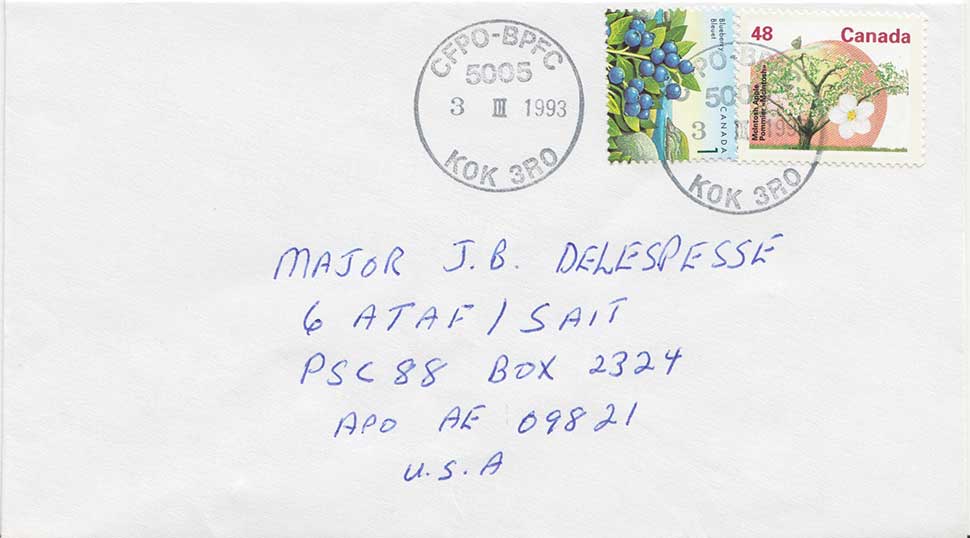 CFPO-BPFC
5005
3 III 1993
K0K 3R0
Blueberry
Bleuet
CANADA
1
48 Canada
McIntosh Apple
Pommier «McIntosh»
CFPO-BPFC
5005
3 III 1993
K0K 3R0
MAJOR J.B. DELESPESSE
6 ATAF / SAIT
PSC 88 BOX 2324
APO AE 09821
U.S.A